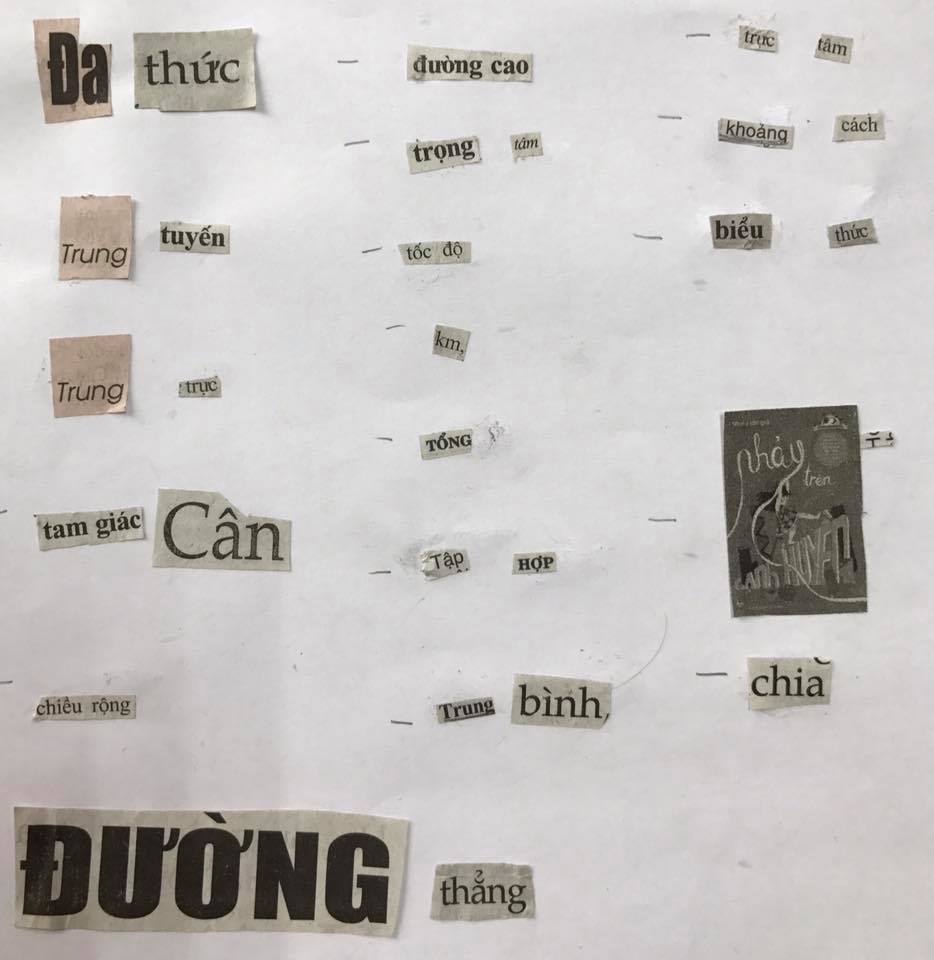 Đa thức
Trung tuyến
Trung trực
- tam giác Cân
- chiều rộng
ĐƯỜNG thẳng
- đường cao
- trọng tâm
- tốc độ
- km,
- TỔNG
- Tập HỢP
- Trung bình,
- trực tâm
- khoảng cách
- biểu thức
nhảy
trên
- chia